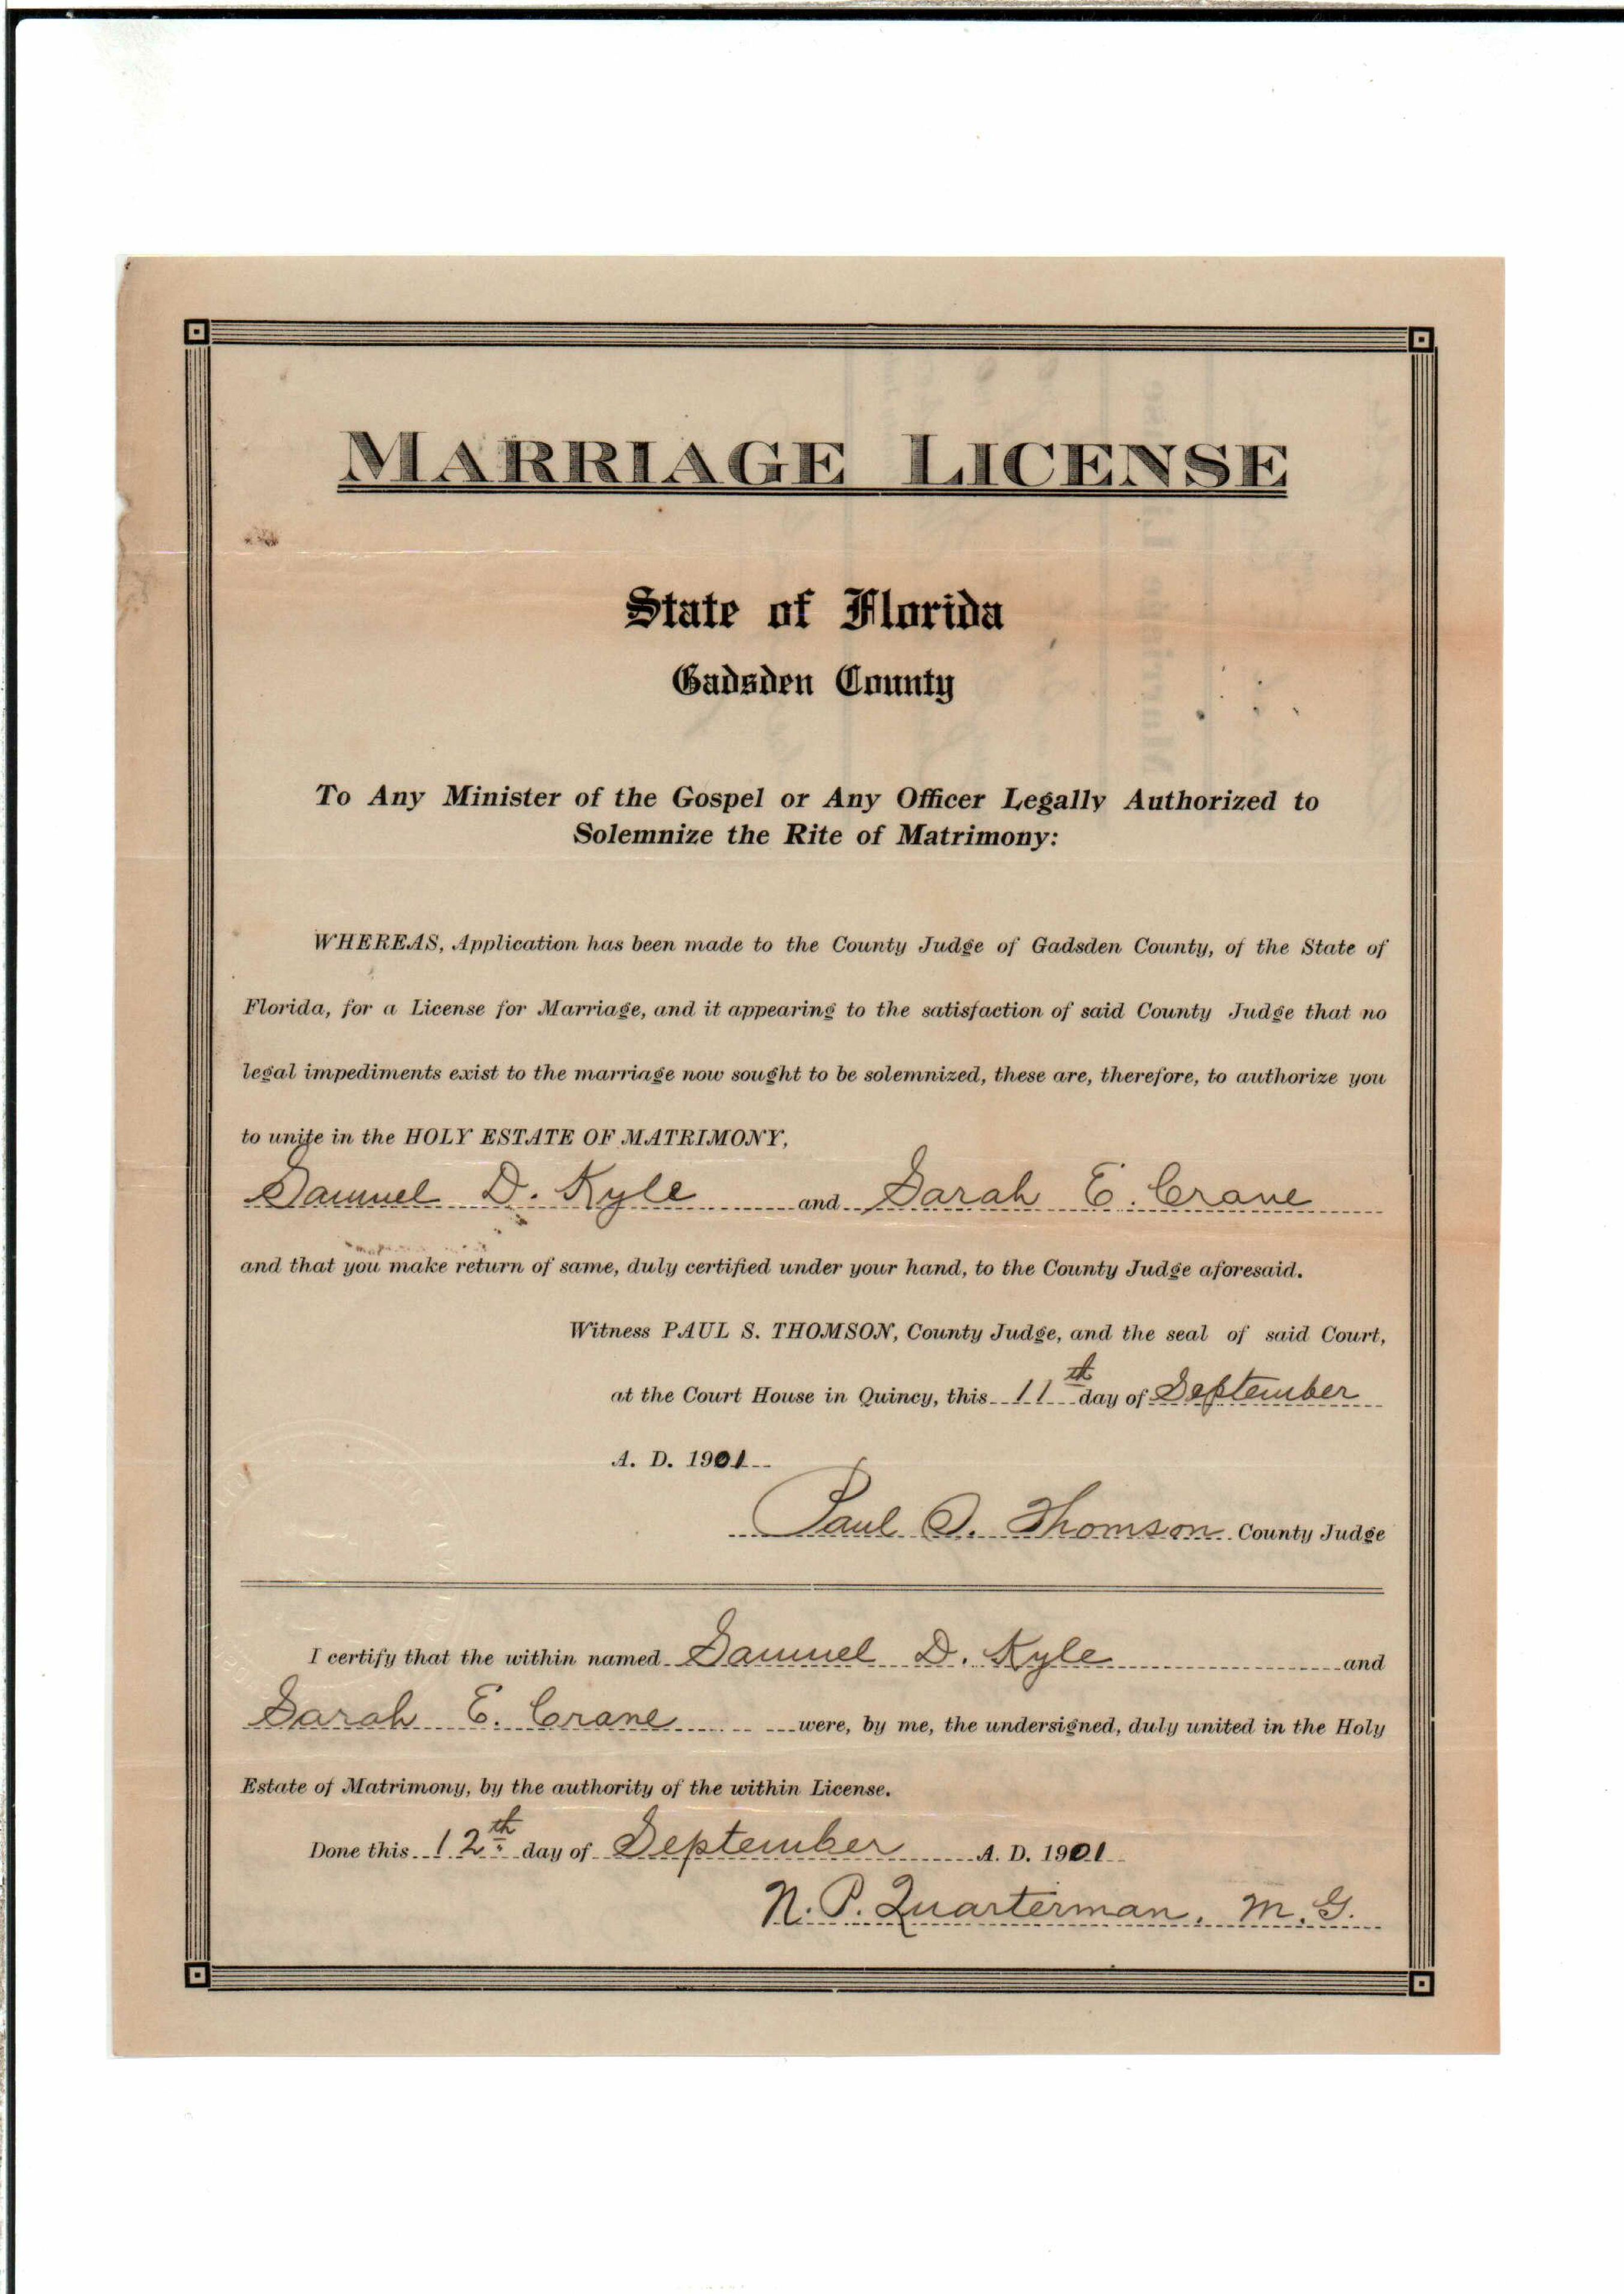 MARRIAGE LICENSE
State of Florida
Gadsden County
To Any Minister of the Gospel or Any Officer Legally Authorized to
Solemnize the Rite of Matrimony:
WHEREAS, Application has been made to the County Judge of Gadsden County, of the State of
Florida, for a License for Marriage, and it appearing to the satisfaction of said County Judge that no
legal impediments exist to the marriage now sought to be solemnized, these are, therefore, to authorize you
to unite in the HOLY ESTATE OF MATRIMONY,
Samuel D. Kyle and Sarah E. Crane
and that you make return of same, duly certified under your hand, to the County Judge aforesaid.
Witness PAUL S. THOMSON, County Judge, and the seal of said Court,
at the Court House in Quincy, this 11th day of September
A. D. 1901
Paul S. Thomson County Judge
I certify that the within named Samuel D. Kyle and
Sarah E. Crane were, by me, the undersigned, duly united in the Holy
Estate of Matrimony, by the authority of the within License.
Done this 12th day of September A. D. 1901
N. P. Quarterman, M. G.